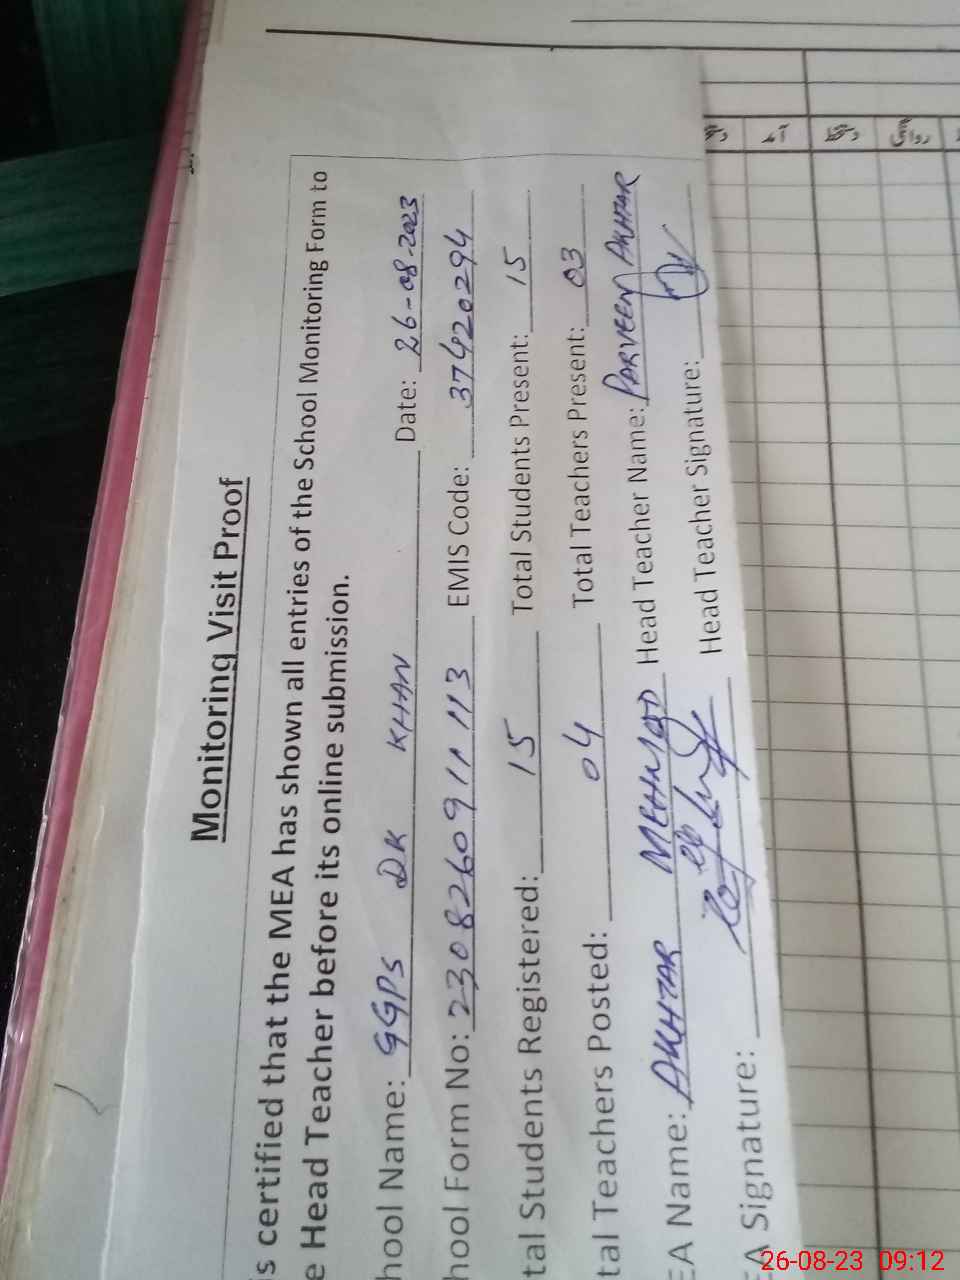 Monitoring Visit Proof
is certified that the MEA has shown all entries of the School Monitoring Form to
e Head Teacher before its online submission.
hool Name: GGPS DK KHAN Date: 26-08-2023
hool Form No: 2308260911113 EMIS Code: 37420294
tal Students Registered: 15 Total Students Present: 15
tal Teachers Posted: 04 Total Teachers Present: 03
EA Name: AKHTAR MEHMOOD Head Teacher Name: PARVEEN AKHTAR
EA Signature: Head Teacher Signature:
26-08-23 09:12